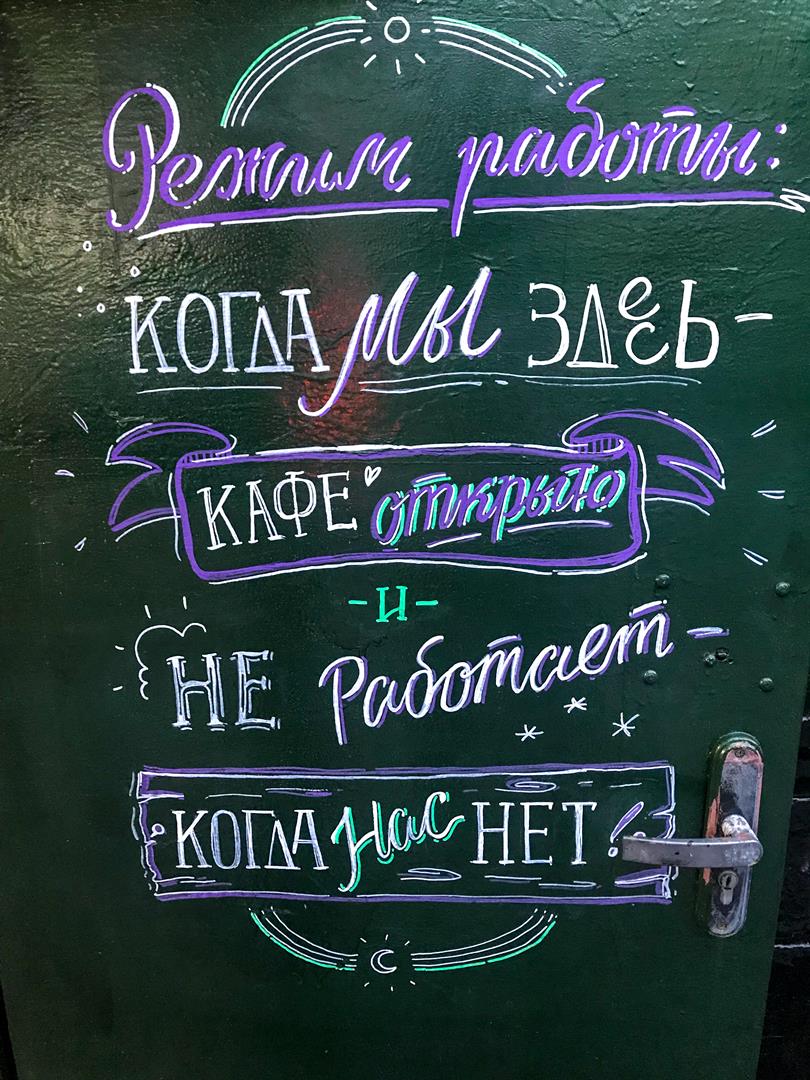 Режим работы:
КОГДА МЫ ЗДЕСЬ -
КАФЕ открыто
- И -
НЕ Работает -
КОГДА Нас НЕТ!